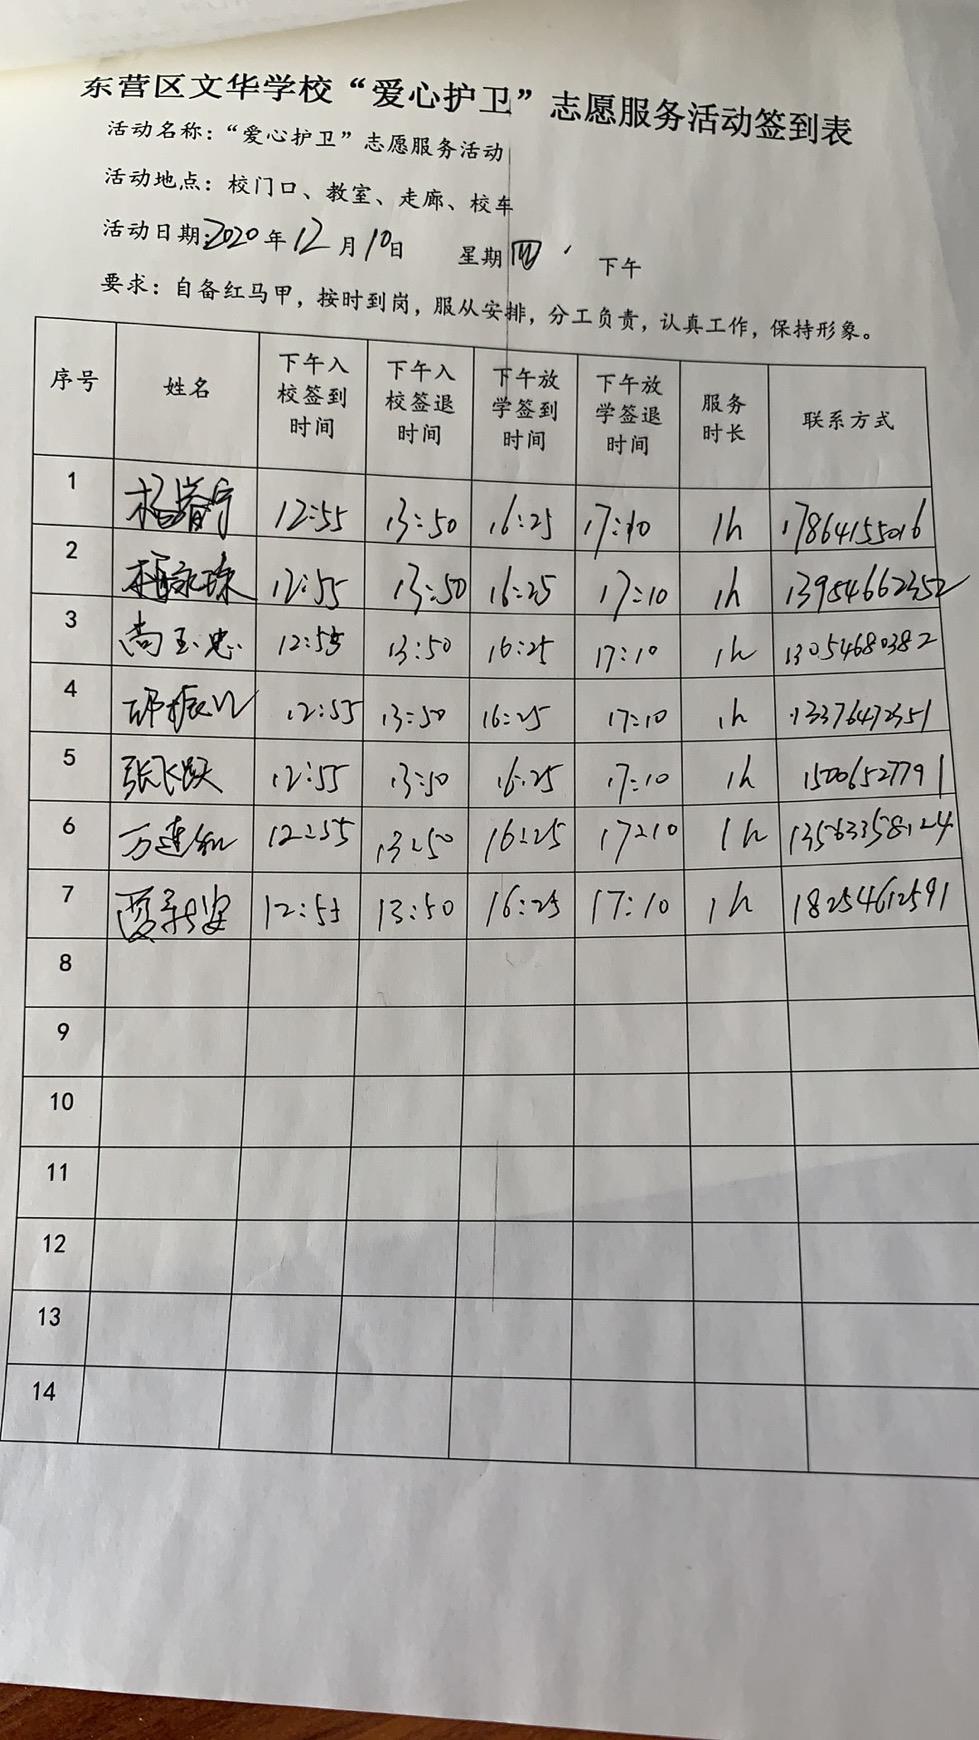 东营区文华学校“爱心护卫”志愿服务活动签到表
活动名称：“爱心护卫”志愿服务活动
活动地点：校门口、教室、走廊、校车
活动日期：2020年12月10日 星期四 下午
要求：自备红马甲，按时到岗，服从安排，分工负责，认真工作，保持形象。
序号 姓名 下午入校签到时间 下午入校签退时间 下午放学签到时间 下午放学签退时间 服务时长 联系方式
1 12:55 13:50 16:25 17:10 1h 17864155016
2 12:55 13:50 16:25 17:10 1h 13954662352
3 尚玉忠 12:55 13:50 16:25 17:10 1h 13054680382
4 12:55 13:50 16:25 17:10 1h 13376472351
5 张飞跃 12:55 13:50 16:25 17:10 1h 15006527791
6 12:55 13:50 16:25 17:10 1h 13563358124
7 12:55 13:50 16:25 17:10 1h 18254612591
8
9
10
11
12
13
14